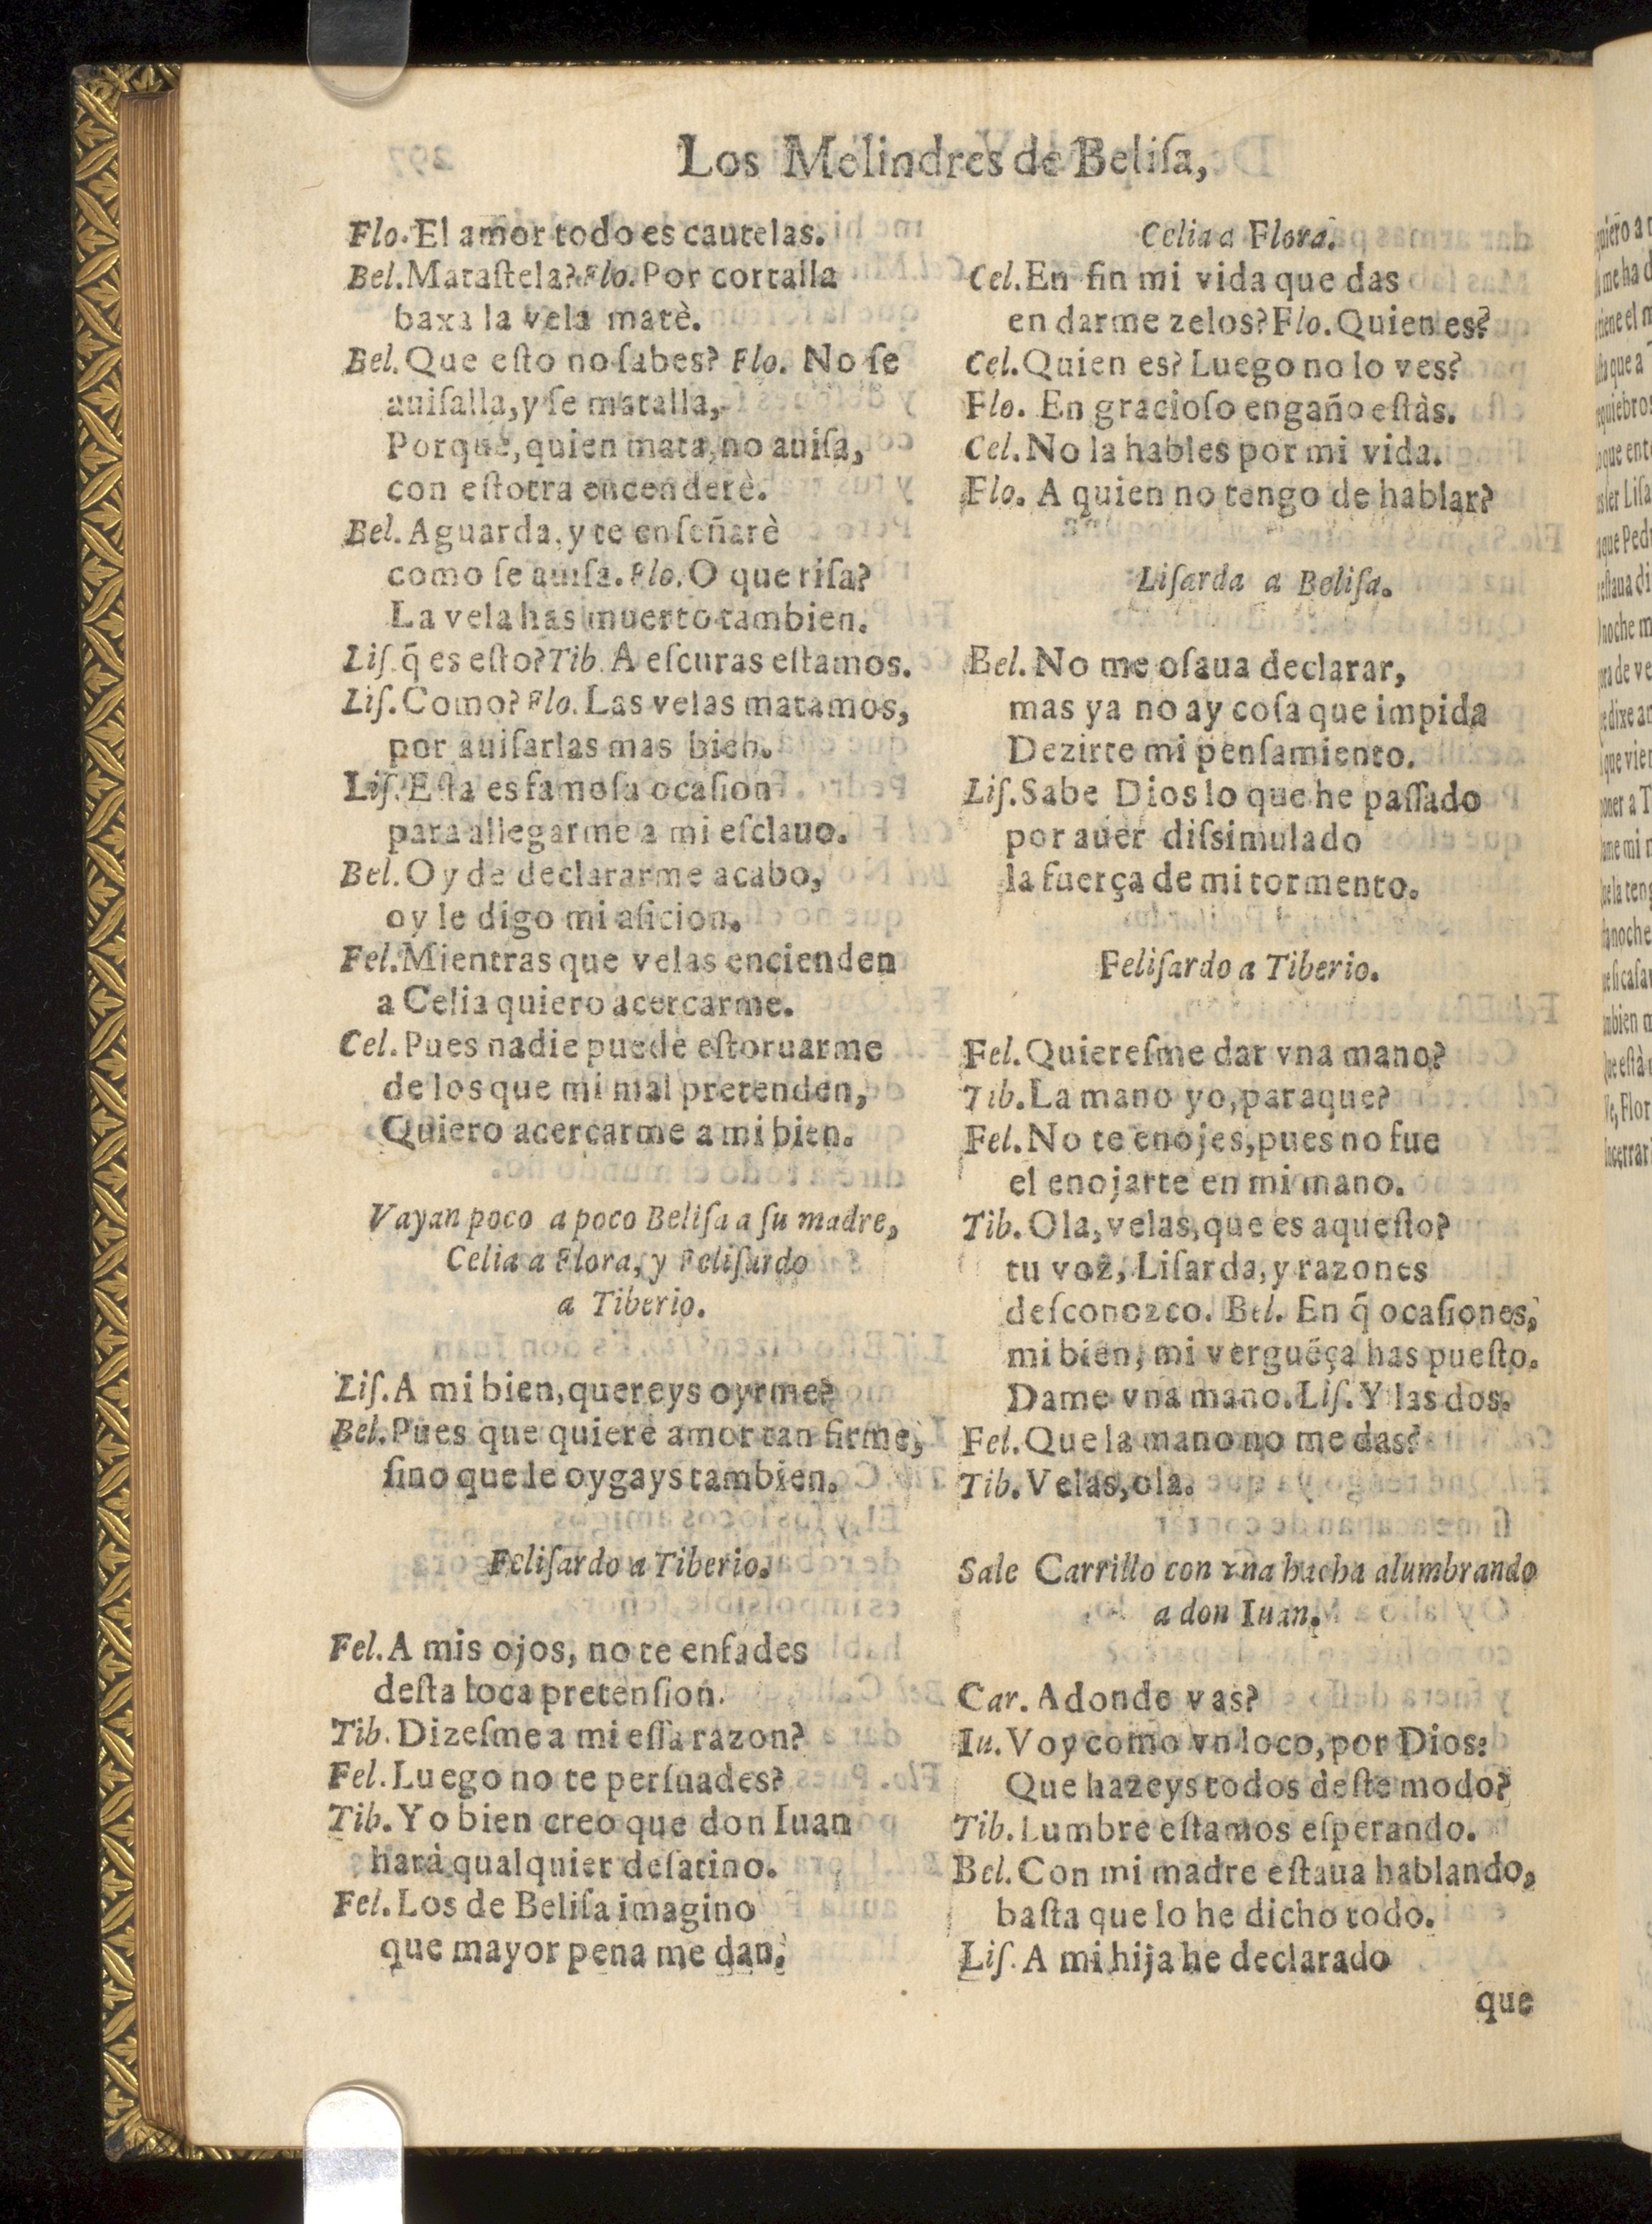 Los Melindres de Beliſa,
Flo. El amor todo es cautelas.
Bel. Mataſtela? Flo. Por cortalla
baxa la vela matè.
Bel. Que eſto no ſabes? Flo. No ſe
auiſalla, y ſe matalla,
Porque, quien mata, no auiſa,
con eſtotra encenderè.
Bel. Aguarda, y te enſeñarè
como ſe auiſa. Flo. O que riſa?
La vela has muerto tambien.
Liſ. q̃ es eſto? Tib. A eſcuras eſtamos.
Liſ. Como? Flo. Las velas matamos,
por auiſarlas mas bien.
Liſ. Eſta es famoſa ocaſion
para allegarme a mi eſclauo.
Bel. Oy de declararme acabo,
oy le digo mi aficion.
Fel. Mientras que velas encienden
a Celia quiero acercarme.
Cel. Pues nadie puede eſtoruarme
de los que mi mal pretenden,
Quiero acercarme a mi bien.
Vayan poco a poco Beliſa a ſu madre,
Celia a Flora, y Feliſardo
a Tiberio.
Liſ. A mi bien, quereys oyrme?
Bel. Pues que quiere amor tan firme,
ſino que le oygays tambien.
Feliſardo a Tiberio.
Fel. A mis ojos, no te enfades
deſta loca pretenſion.
Tib. Dizeſme a mi eſſa razon?
Fel. Luego no te perſuades?
Tib. Yo bien creo que don Iuan
harà qualquier deſatino.
Fel. Los de Beliſa imagino
que mayor pena me dan.
Celia a Flora.
Cel. En fin mi vida que das
en darme zelos? Flo. Quien es?
Cel. Quien es? Luego no lo ves?
Flo. En gracioſo engaño eſtàs.
Cel. No la hables por mi vida.
Flo. A quien no tengo de hablar?
Liſarda a Beliſa.
Bel. No me oſaua declarar,
mas ya no ay coſa que impida
Dezirte mi penſamiento.
Liſ. Sabe Dios lo que he paſſado
por auer diſsimulado
la fuerça de mi tormento.
Feliſardo a Tiberio.
Fel. Quiereſme dar vna mano?
Tib. La mano yo, paraque?
Fel. No te enojes, pues no fue
el enojarte en mi mano.
Tib. Ola, velas, que es aqueſto?
tu voz, Liſarda, y razones
deſconozco. Bel. En q̃ ocaſiones,
mi bien, mi verguẽça has pueſto.
Dame vna mano. Liſ. Y las dos.
Fel. Que la mano no me das?
Tib. Velas, ola.
Sale Carrillo con vna hacha alumbrando
a don Iuan.
Car. Adonde vas?
Iu. Voy como vn loco, por Dios:
Que hazeys todos deſte modo?
Tib. Lumbre eſtamos eſperando.
Bel. Con mi madre eſtaua hablando,
baſta que lo he dicho todo.
Liſ. A mi hija he declarado
que